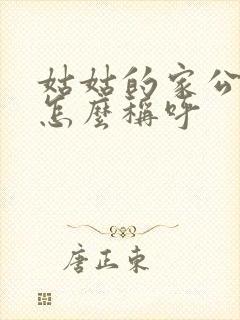 姑姑的家公
怎麼稱呼
唐正東